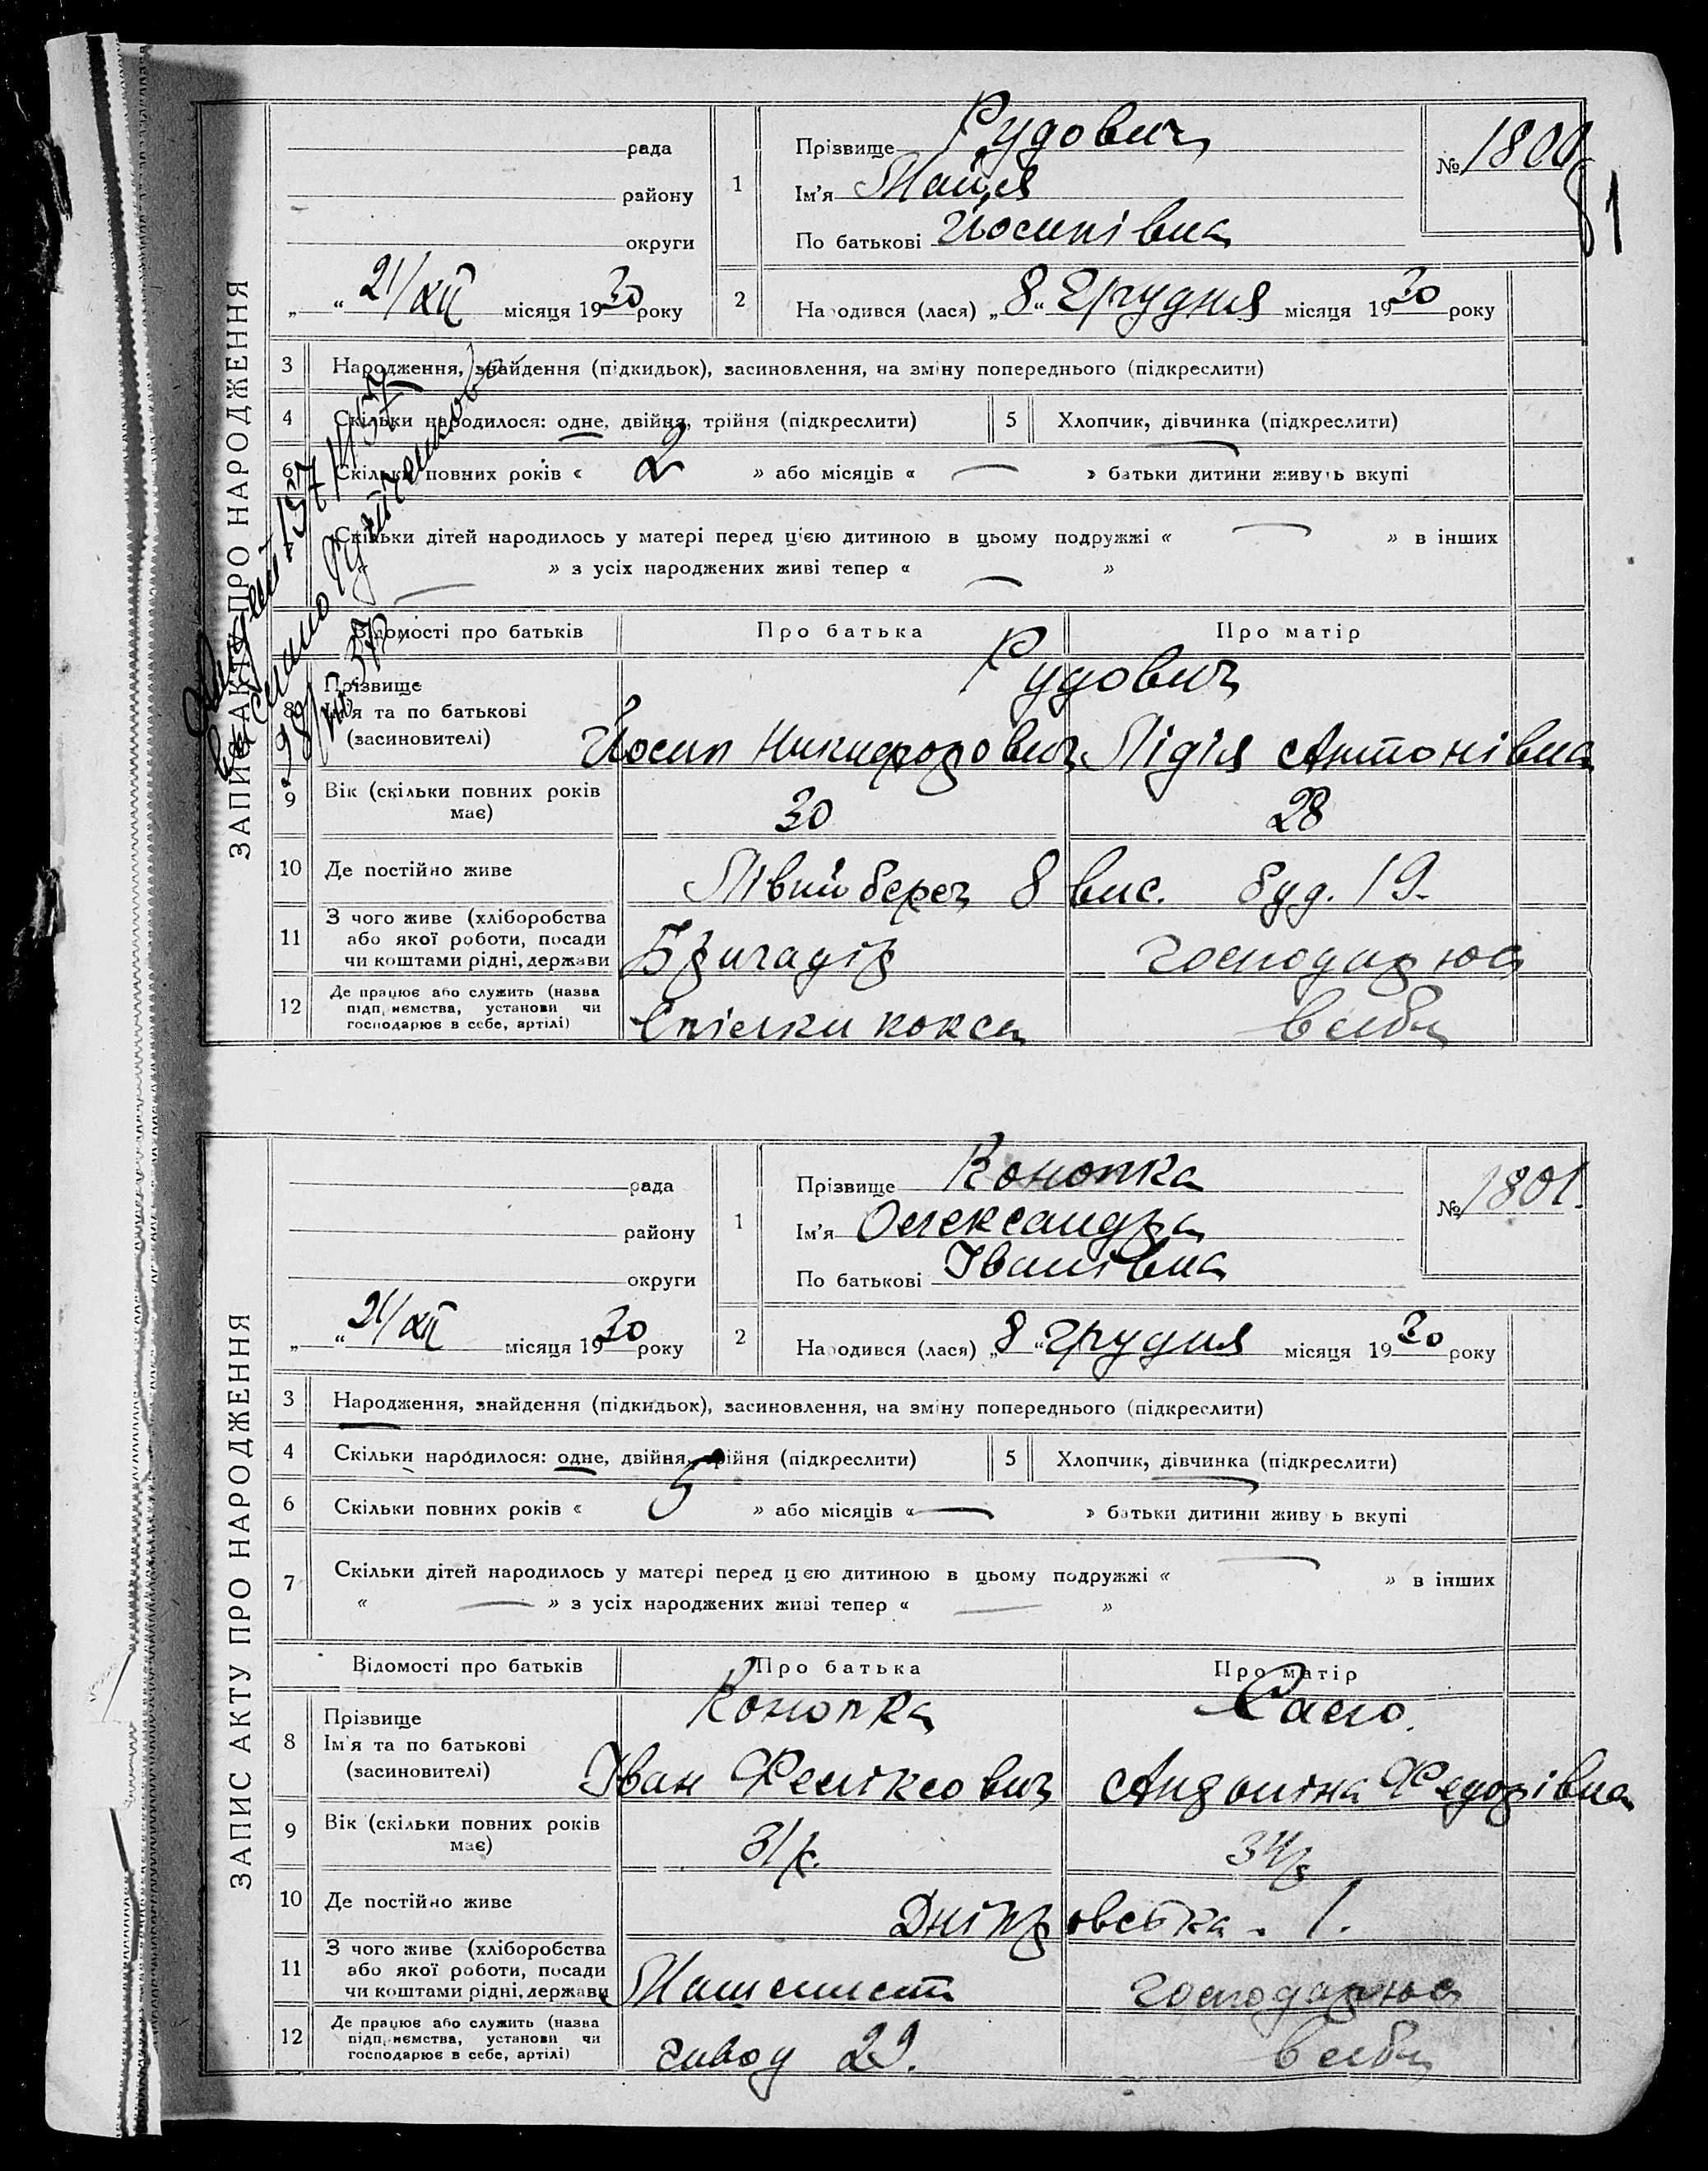 ЗАПИС АКТУ ПРО НАРОДЖЕННЯ
рада
району
округи
„ “ 21/XII місяця 1930 року
1 Прізвище Рудович
Ім'я Майя
По батькові Йосипівна
№ 1800
81
2 Народився (лася) „8“ Грудня місяця 1930 року
3 Народження, знайдення (підкидьок), засиновлення, на зміну попереднього (підкреслити)
4 Скільки народилося: одне, двійня, трійня (підкреслити) 5 Хлопчик, дівчинка (підкреслити)
6 Скільки повних років « 2 » або місяців « — » батьки дитини живуть вкупі
Скільки дітей народилось у матері перед цією дитиною в цьому подружжі « — » в інших
« — » з усіх народжених живі тепер « — »
Відомості про батьків Про батька Про матір
8 Прізвище Рудович
Ім'я та по батькові
(засновителі) Йосип Никифорович Лідія Антонівна
9 Вік (скільки повних років має) 30 28
10 Де постійно живе Лівий берег 8 вис. буд. 19.
11 З чого живе (хліборобства
або якої роботи, посади
чи коштами рідні, держави Бригадір господарює
12 Де працює або служить (назва
підприємства, установи чи
господарює в себе, артілі) Спілки кокса в себе
ЗАПИС АКТУ ПРО НАРОДЖЕННЯ
рада
району
округи
„ “ 21/XII місяця 1930 року
1 Прізвище Конопка
Ім'я Олександра
По батькові Іванівна
№ 1801.
2 Народився (лася) „8“ грудня місяця 1930 року
3 Народження, знайдення (підкидьок), засиновлення, на зміну попереднього (підкреслити)
4 Скільки народилося: одне, двійня, трійня (підкреслити) 5 Хлопчик, дівчинка (підкреслити)
6 Скільки повних років « 5 » або місяців « — » батьки дитини живуть вкупі
7 Скільки дітей народилось у матері перед цією дитиною в цьому подружжі « — » в інших
« — » з усіх народжених живі тепер « — »
Відомості про батьків Про батька Про матір
8 Прізвище Конопка
Ім'я та по батькові
(засиновителі) Іван Феліксович Федорівна
9 Вік (скільки повних років має) 31/р.
10 Де постійно живе Дніпровська. 1.
11 З чого живе (хліборобства
або якої роботи, посади
чи коштами рідні, держави Машинист господарює
12 Де працює або служить (назва
підприємства, установи чи
господарює в себе, артілі) завод 29. в себе